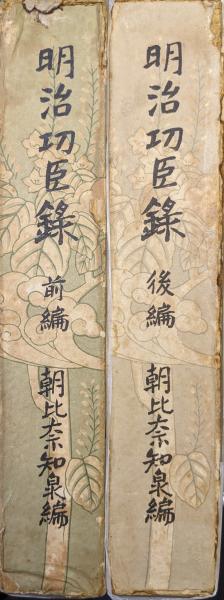 明治功臣錄
前編
朝比奈知泉編
明治功臣錄
後編
朝比奈知泉編